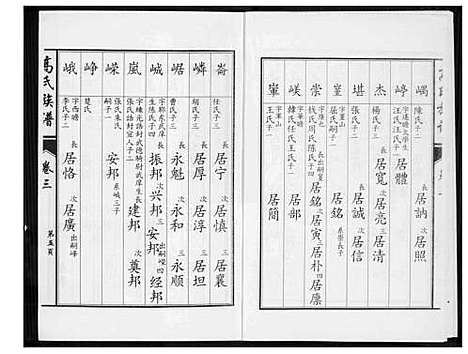 嵎 陳氏子二 長 居訥 次 居照
嵉 汪氏江氏子一 居體
杰 楊氏子三 長 居寬 次 居亮 三 居清
堪 張氏子二 長 居誠 次 居信
崑 居氏嗣子一 居銘
崇 錢氏周氏陳氏子四 長 居銘 次 居寅 三 居朴 四 居廪
嵄 韓氏王氏子一 居部
嶪 王氏子一 居簡
崙 任氏子三 長 居寧 次 居慎 三 居襄
嶙 胡氏子三 長 居厚 次 居淳 三 居坦
崌 曹氏子三 長 永魁 次 永和 三 永順
峸 長 振邦 次 兴邦 三 安邦 出嗣嶸 四 经邦
嵐 長 建邦 次 奠邦
嶸 張氏朱氏嗣子一 安邦 系峸三子
崢 楚氏
峨 李氏子二 長 居恪 次 居廣 出嗣峰
高氏族譜
卷三
第五頁